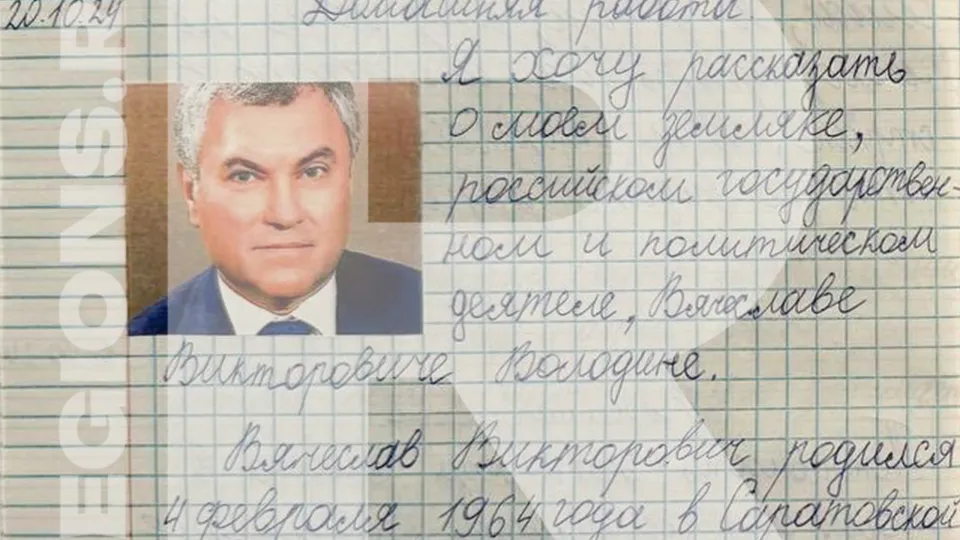 20.10.24 Домашняя работа.
Я хочу рассказать
о моём земляке,
российском государствен-
ном и политическом
деятеле, Вячеславе
Викторовиче Володине.
Вячеслав Викторович родился
4 февраля 1964 года в Саратовской
EGIONS.R